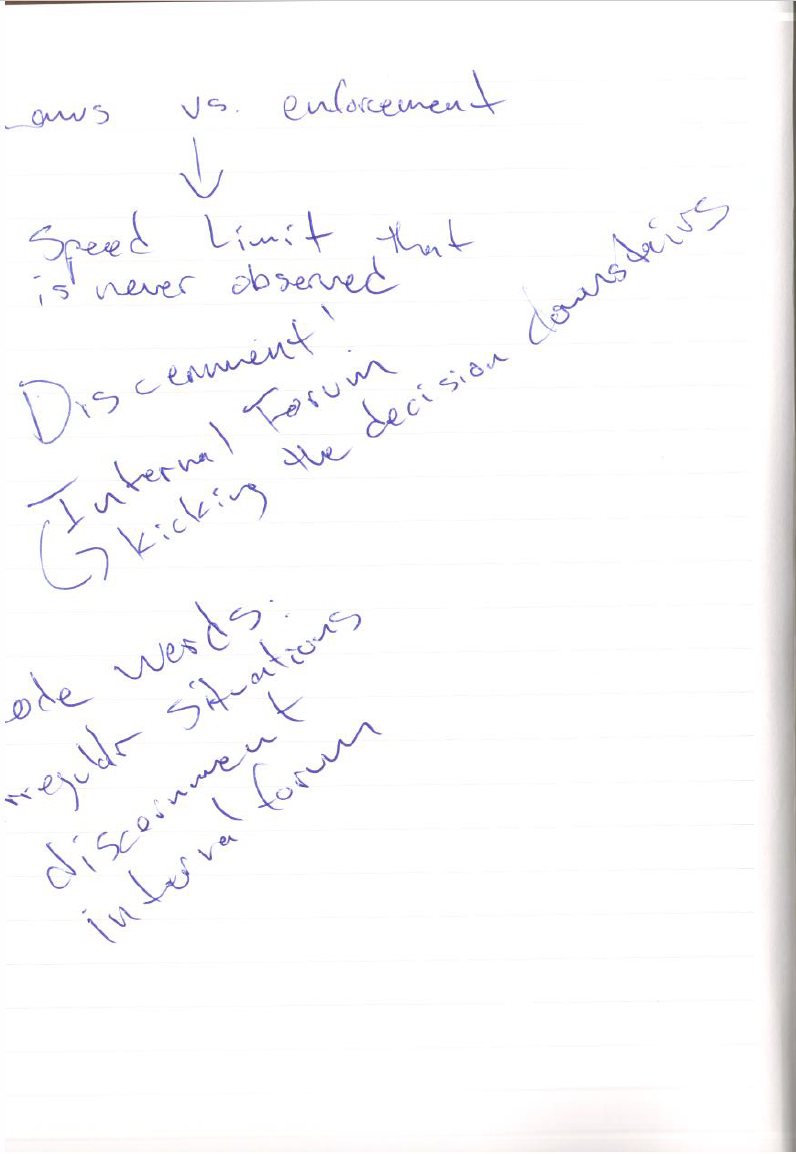 aws vs. enforcement
↓
Speed Limit that
is never observed
Discernment!
Internal Forum
↪ kicking the decision downstairs
ode words:
rregular situations
discernment
internal forum